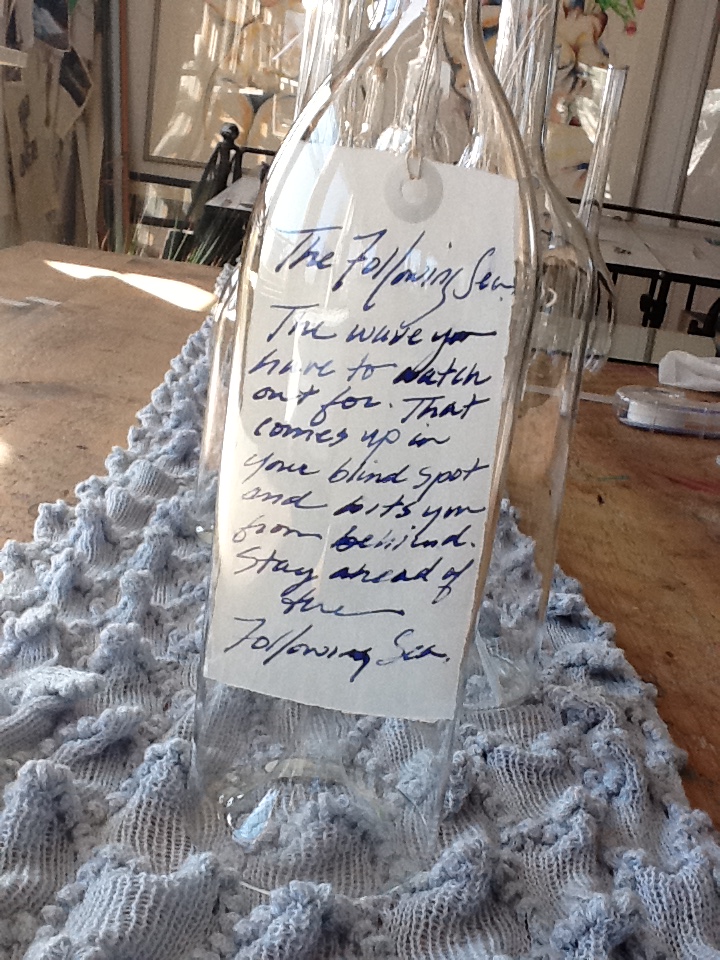 The Following Sea.
The wave you
have to watch
out for. That
comes up in
your blind spot
and hits you
from behind.
Stay ahead of
the
Following Sea.